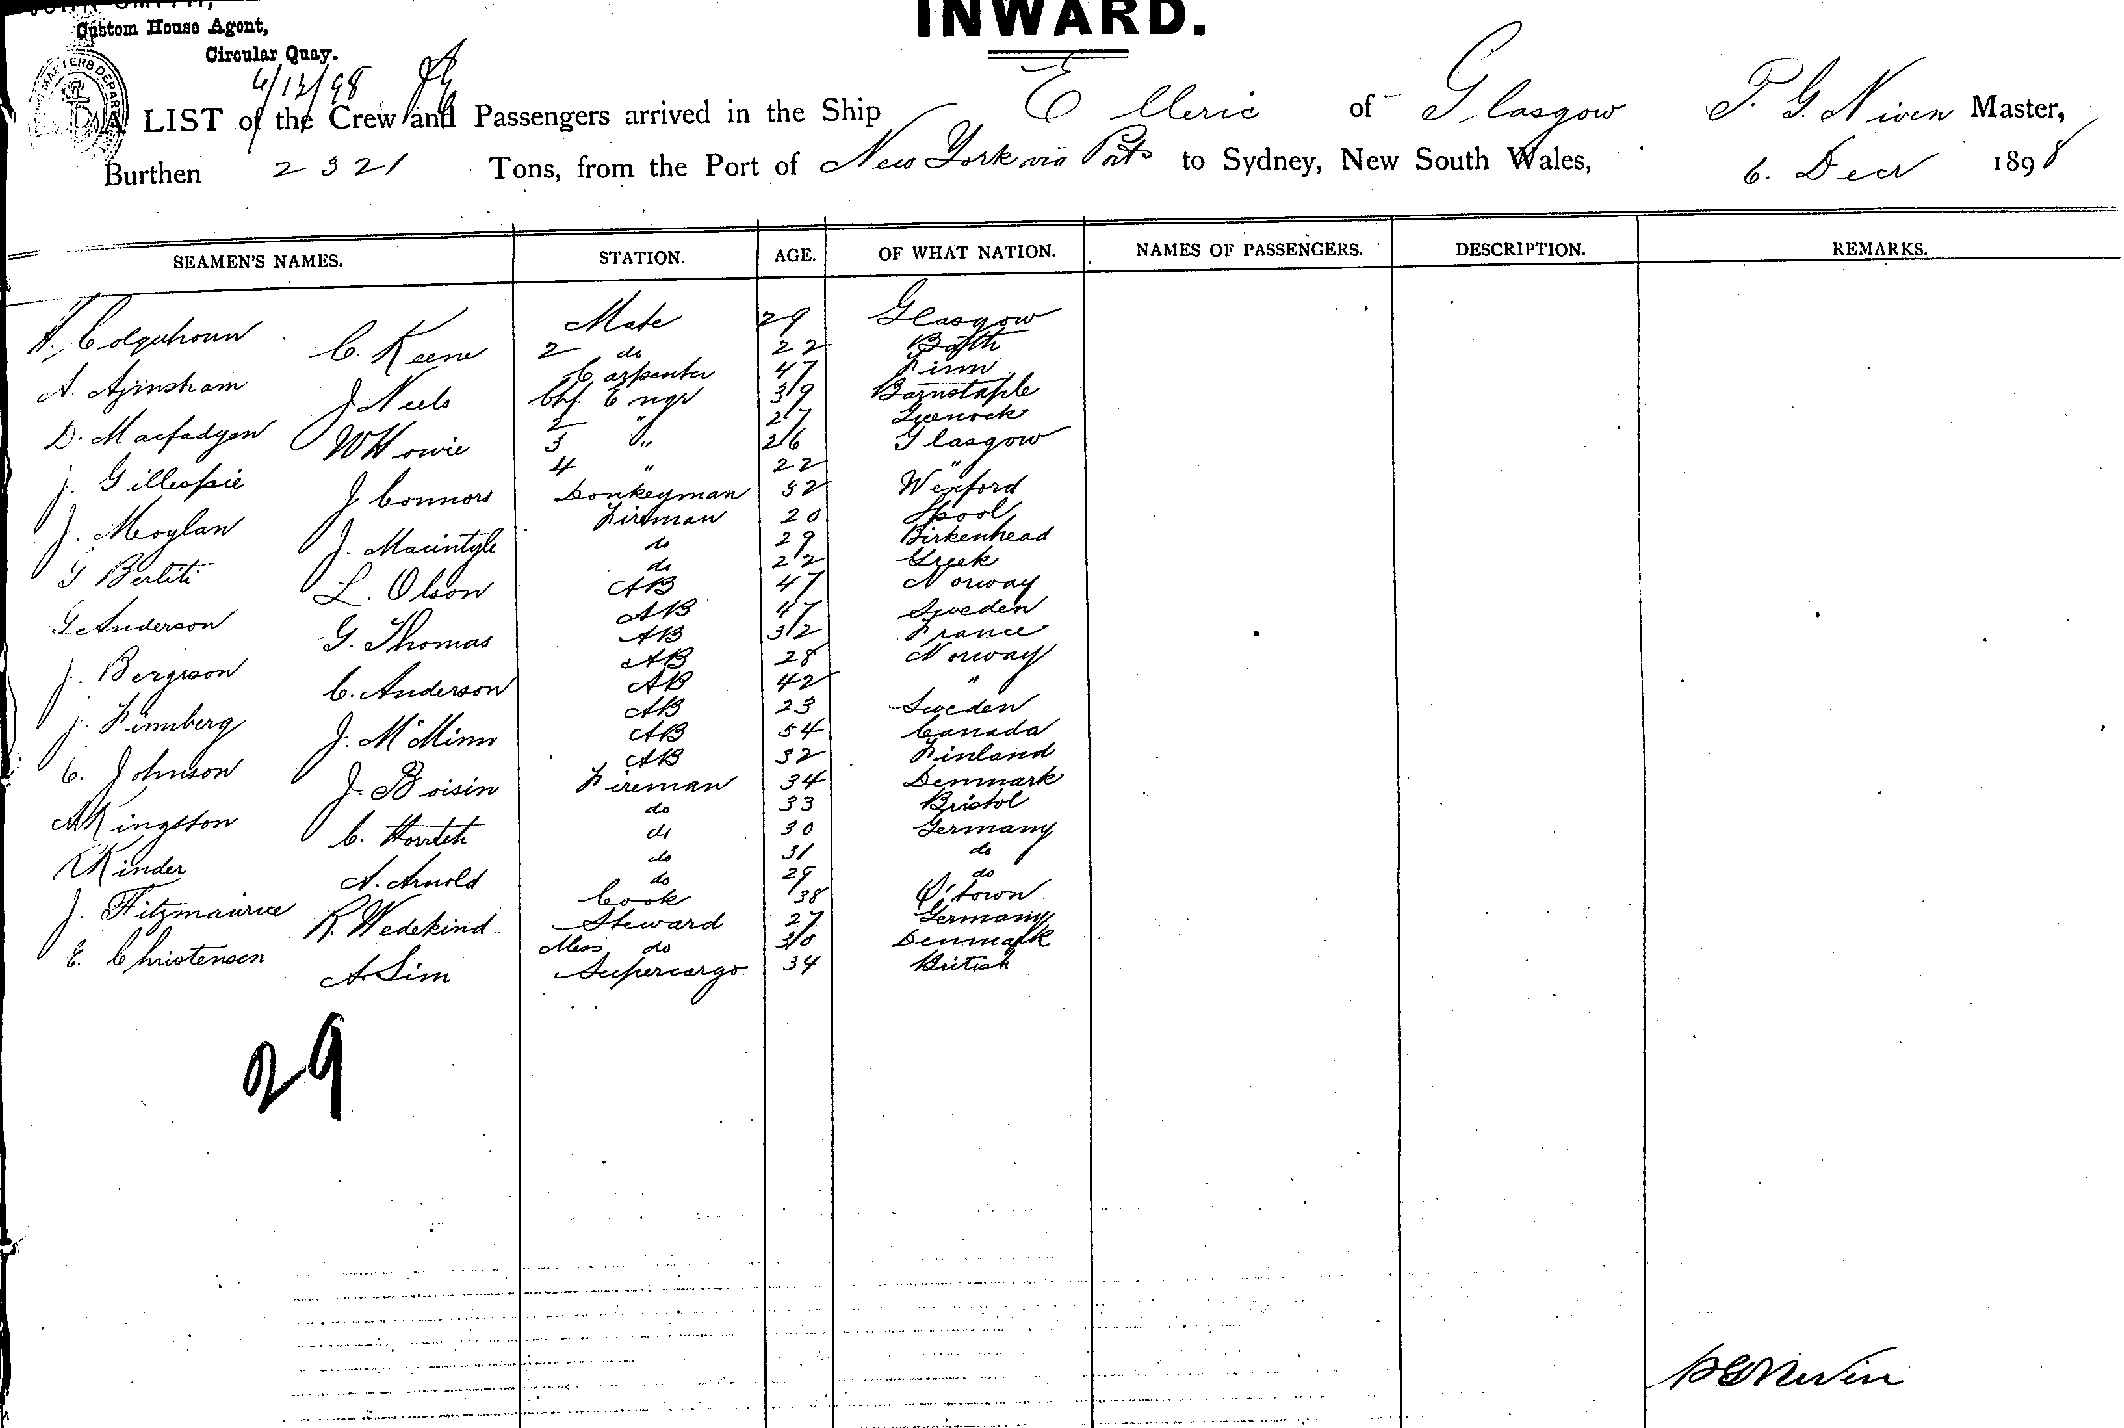 JOHN SMITH,
Custom House Agent,
Circular Quay.
INWARD.
6/12/98
A LIST of the Crew and Passengers arrived in the Ship Elleric of Glasgow T. G. Niven Master,
Burthen 2321 Tons, from the Port of New York via Ports to Sydney, New South Wales, 6. Decr 1898
SEAMEN'S NAMES. STATION. AGE. OF WHAT NATION. NAMES OF PASSENGERS. DESCRIPTION. REMARKS.
Colquhoun Mate 29 Glasgow
C. Keene 2 do 22 Bath
A. Ajrnsham Carpenter 47 Finn
J Neels Chf. Engr 39 Barnstaple
D. Macfadyen 2 " 27 Greenock
W Howie 3 " 26 Glasgow
J. Gillespie 4 " 22 "
J Connors Donkeyman 52 Wexford
J. Moylan Fireman 20 Lpool
J. Macintyle do 29 Birkenhead
G Berliti do 22 Greek
L. Olson AB 47 Norway
G Anderson AB 47 Sweden
G. Thomas AB 32 France
J. Bergeson AB 28 Norway
C. Anderson AB 42 "
J. Finnberg AB 23 Sweden
J. McMinn AB 54 Canada
C. Johnson AB 32 Finland
J. Boisin Fireman 34 Denmark
A Kingston do 33 Bristol
C. do 30 Germany
Kinder do 31 do
A. Arnold do 29 do
J. Fitzmaurice Cook 38 Q'town
R. Wedekind Steward 27 Germany
E. Christensen Mess do 30 Denmark
A Sim Supercargo 34 British
29